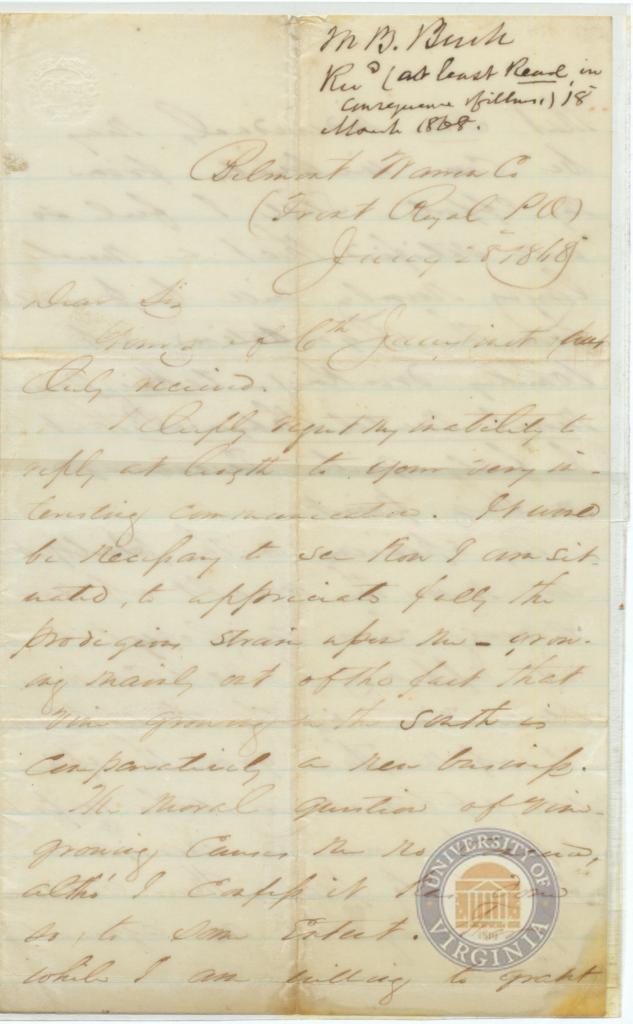 M B. Buck
Rec'd (at least Read, in
consequence of illness) 18
March 1868.
Belmont Warren Co
(Front Royal P.O)
Jany 28 1868
Dear Sir
Yours of 6th Jany inst was
duly received.
I deeply regret my inability to
reply at length to your very in-
teresting communication. It would
be necessary to see how I am sit-
uated, to appreciate fully the
prodigious strain upon me - grow-
ing mainly out of the fact that
vine growing in the South is
comparatively a new business.
The moral question of vine-
growing causes me no
altho' I confess it has done
so, to some extent.
while I am willing to grant
UNIVERSITY OF VIRGINIA
1819